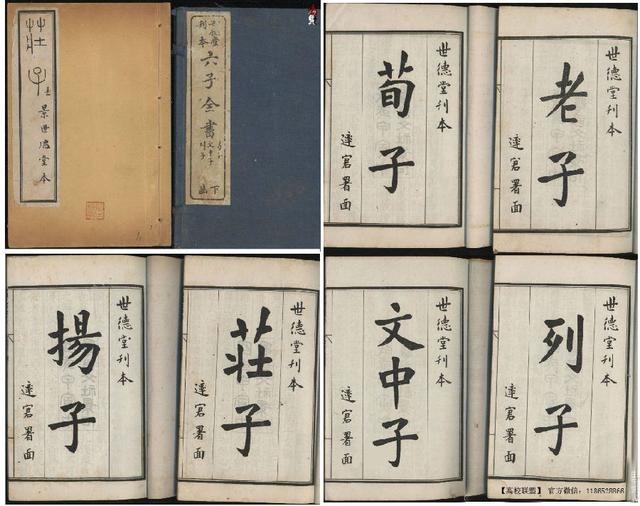 莊子
景世德堂本
世德堂
刊本
六子全書
文中子
列子
下
函
世德堂刊本
荀子
署面
世德堂刊本
老子
署面
世德堂刊本
揚子
署面
世德堂刊本
莊子
署面
世德堂刊本
文中子
署面
世德堂刊本
列子
署面
【高校联盟】 官方微信：